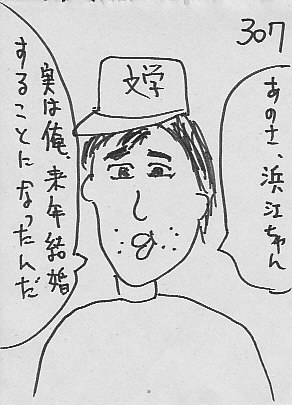 307
あのさ、浜江ちゃん
文学
実は俺、来年結婚
することになったんだ